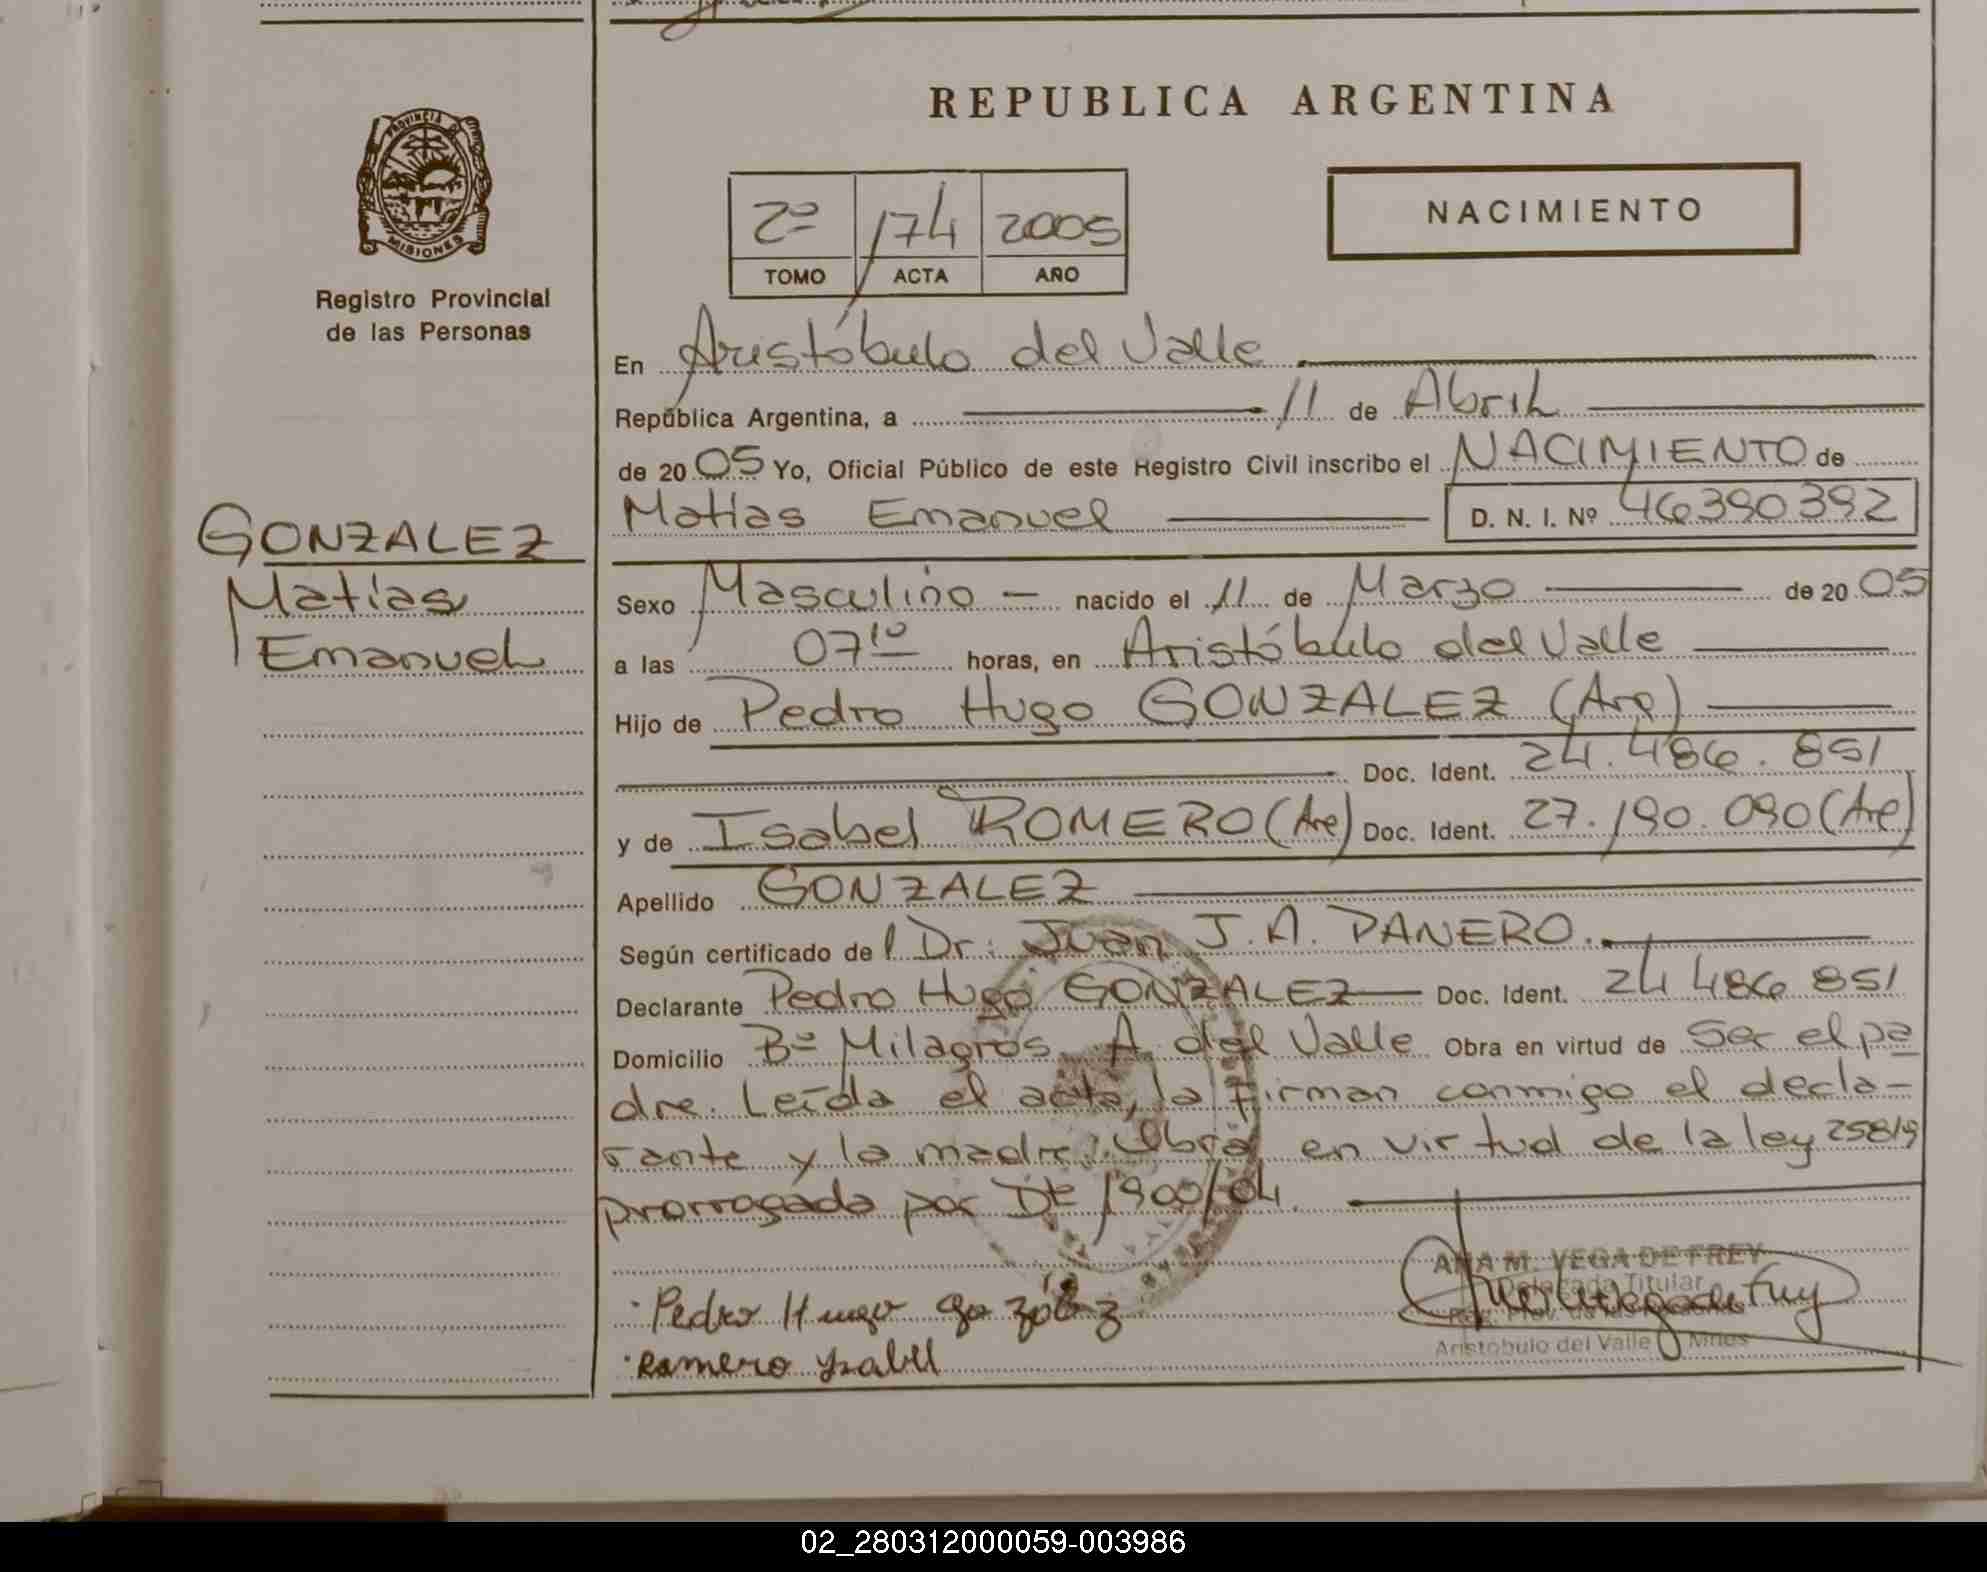 REPUBLICA ARGENTINA
PROVINCIA DE
MISIONES
Registro Provincial
de las Personas
2º 174 2005
TOMO ACTA AÑO
NACIMIENTO
En Aristóbulo del Valle
República Argentina, a 11 de Abril
de 20 05 Yo, Oficial Público de este Registro Civil inscribo el NACIMIENTO de
Matías Emanuel D. N. I. Nº 46390392
GONZALEZ
Matías
Emanuel
Sexo Masculino - nacido el 11 de Marzo de 20 05
a las 07 10 horas, en Aristóbulo del Valle
Hijo de Pedro Hugo GONZALEZ (Arg)
Doc. Ident. 24.486.851
y de Isabel ROMERO (Arg) Doc. Ident. 27.190.090 (Arg)
Apellido GONZALEZ
Según certificado de l Dr. Juan J. A. PANERO.
Declarante Pedro Hugo GONZALEZ Doc. Ident. 24 486 851
Domicilio Bº Milagros A. del Valle Obra en virtud de Ser el pa
dre. Leída el acta, la firman conmigo el decla-
rante y la madre. Obra en virtud de la ley 25819
prorrogada por Dto 1900/04.
ANA M. VEGA DE FREY
Delegada Titular
Reg. Prov. de las
Aristóbulo del Valle Mnes
Pedro Hugo gonzález
Romero Ysabel
02_280312000059-003986